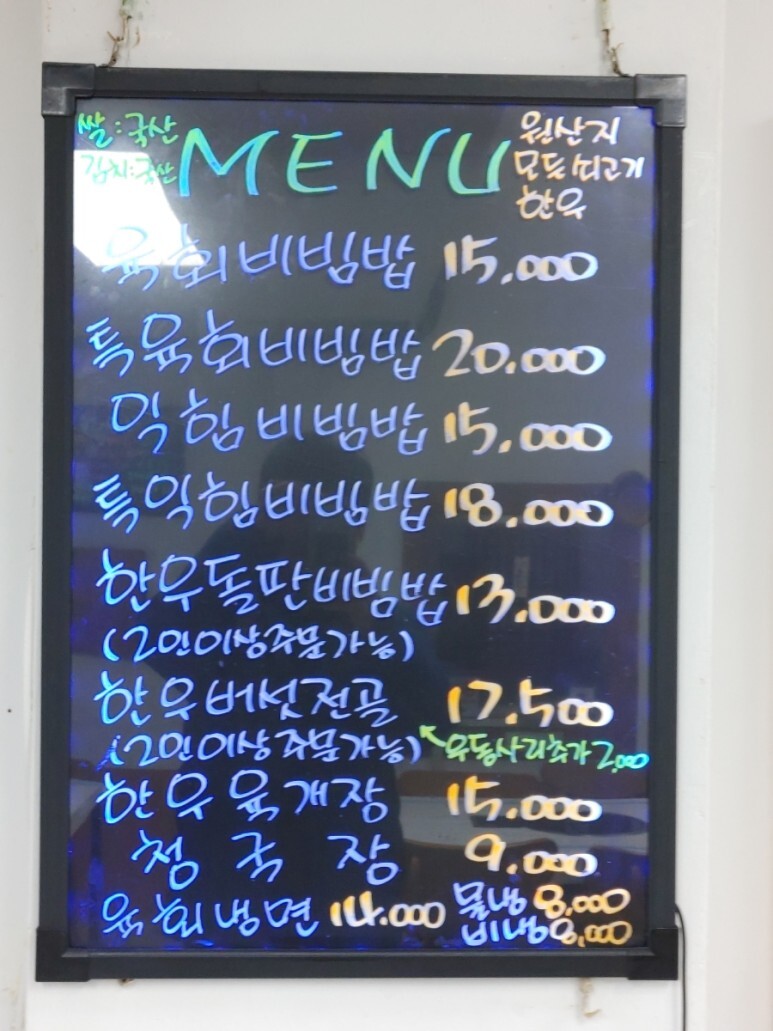 쌀:국산
김치:국산
MENU
원산지
모든쇠고기
한우
육회비빔밥 15.000
특육회비빔밥 20.000
익힘비빔밥 15.000
특익힘비빔밥 18.000
한우돌판비빔밥 13.000
(2인이상주문가능)
한우버섯전골 17.500
(2인이상주문가능) ↖우동사리추가 2,000
한우육개장 15.000
청국장 9.000
육회냉면 14.000
물냉 8,000
비냉 8,000